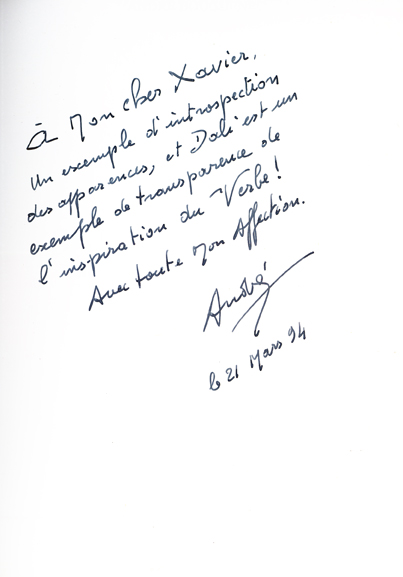 à Mon cher Xavier,
Un exemple d'introspection
des apparences, et Dali est un
exemple de transparence de
l'inspiration du Verbe !
Avec toute Mon Affection.
André
le 21 Mars 94